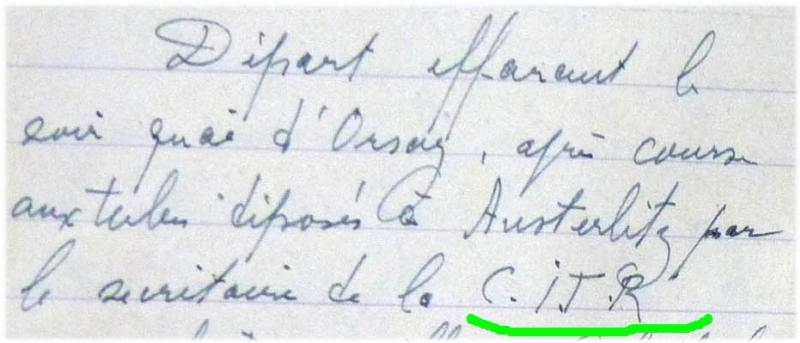 Départ effarant le
soir quai d'Orsay, après course
aux tubes déposés à Austerlitz par
le secrétaire de la C.I.T.R.